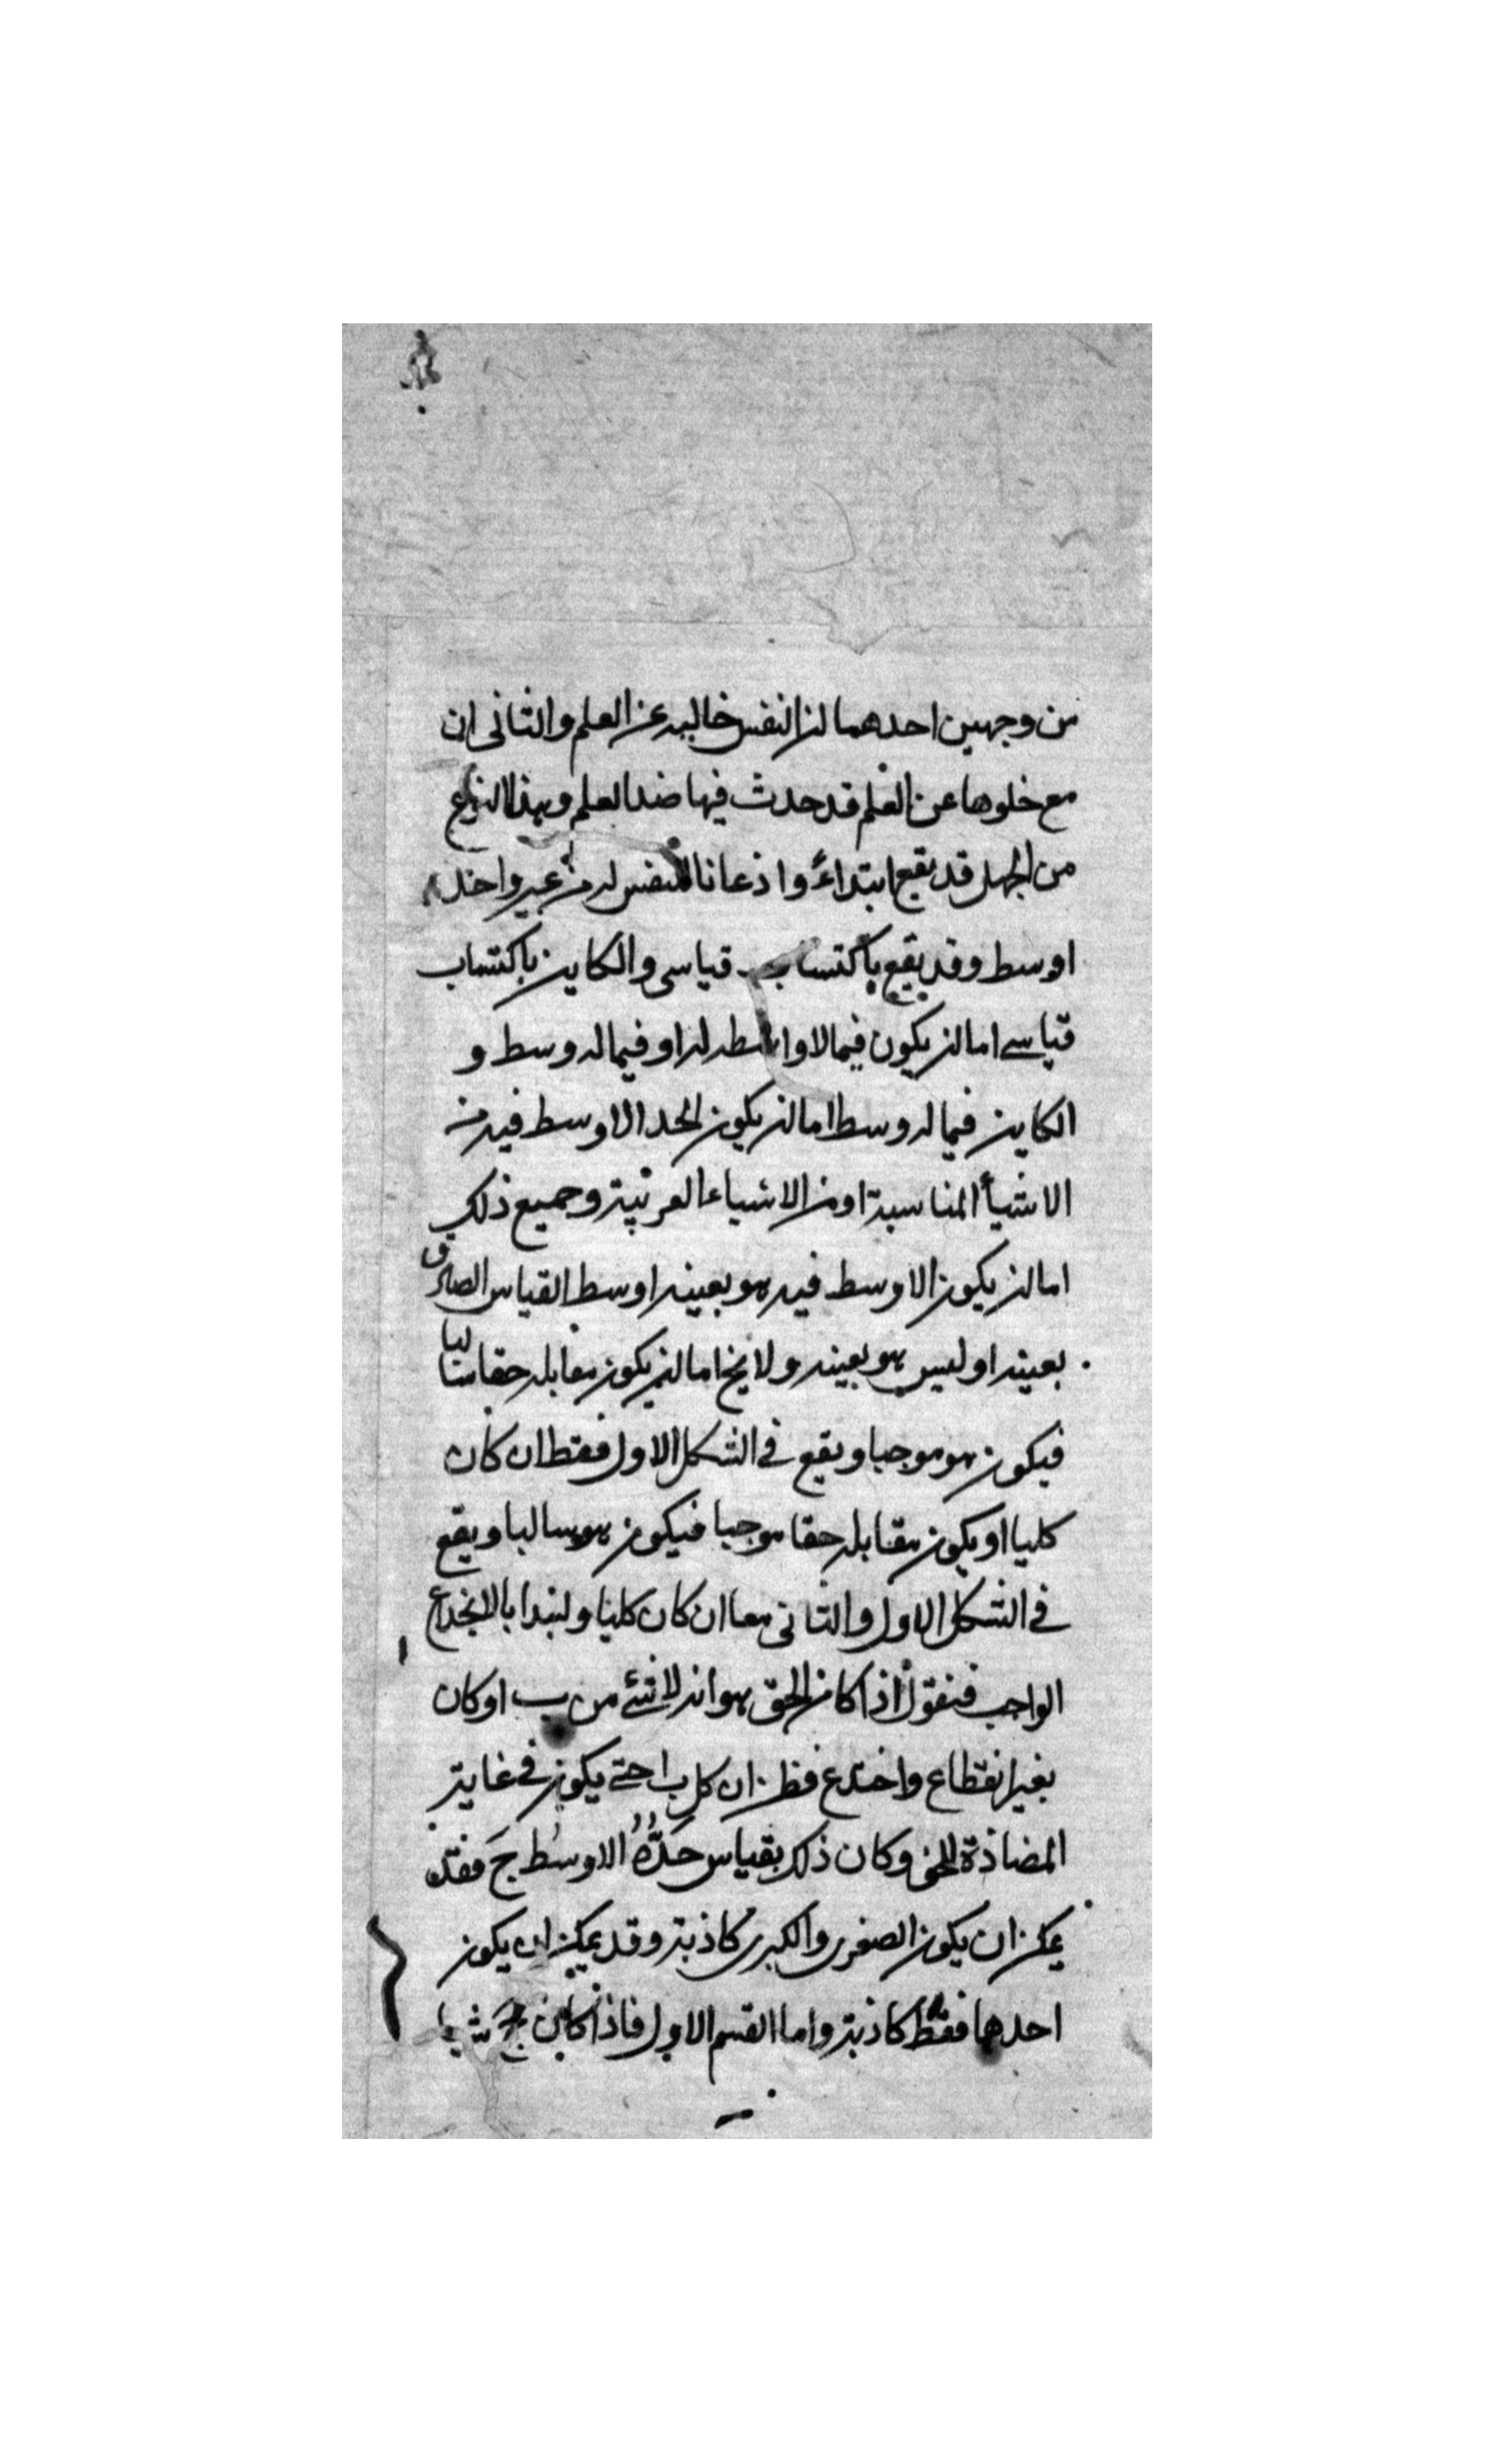 من وجهين احدهما ان النفس خاليه عن العلم والثانى ان
مع خلوها عن العلم قد حدث فيها ضد العلم وهذا النوع
من الجهل قد يقع ابتداءً واذعانا للنفس له من غير واخذ
اوسط وقد يقع باكتساب قياسى والكاين باكتساب
قياسے اما ان يكون فيما لا واسطه له او فيما له وسط و
الكاين فيما له وسط اما ان يكون الحد الاوسط فيه من
الاشيأ المناسبة او من الاشياء الغريبة وجميع ذلك
اما ان يكون الاوسط فيه هو بعينه اوسط القياس الصادق
بعينه او ليس هو بعينه ولا يخ اما ان يكون مقابله حقا سالبا
فيكون هو موجبا ويقع فے الشكل الاول فقط ان كان
كليا او يكون مقابله حقا موجبا فيكون هو سالبا ويقع
فے الشكل الاول والثانى معا ان كان كليا ولنبدا بالانخداع
الواجب فنقول اذا كان الحق هو انه لا شئے من ب ا وكان
بغير انقطاع واختدع فظن ان كل ب ا حتے يكون فے غاية
المضادة للحق وكان ذلك بقياس حَدُّهُ الاوسُط جَ فقد
يمكن ان يكون الصغرى والكبرى كاذبة وقد يمكن ان يكون
احدها فقط كاذبة واما القسم الاول فاذا كان ج شيا